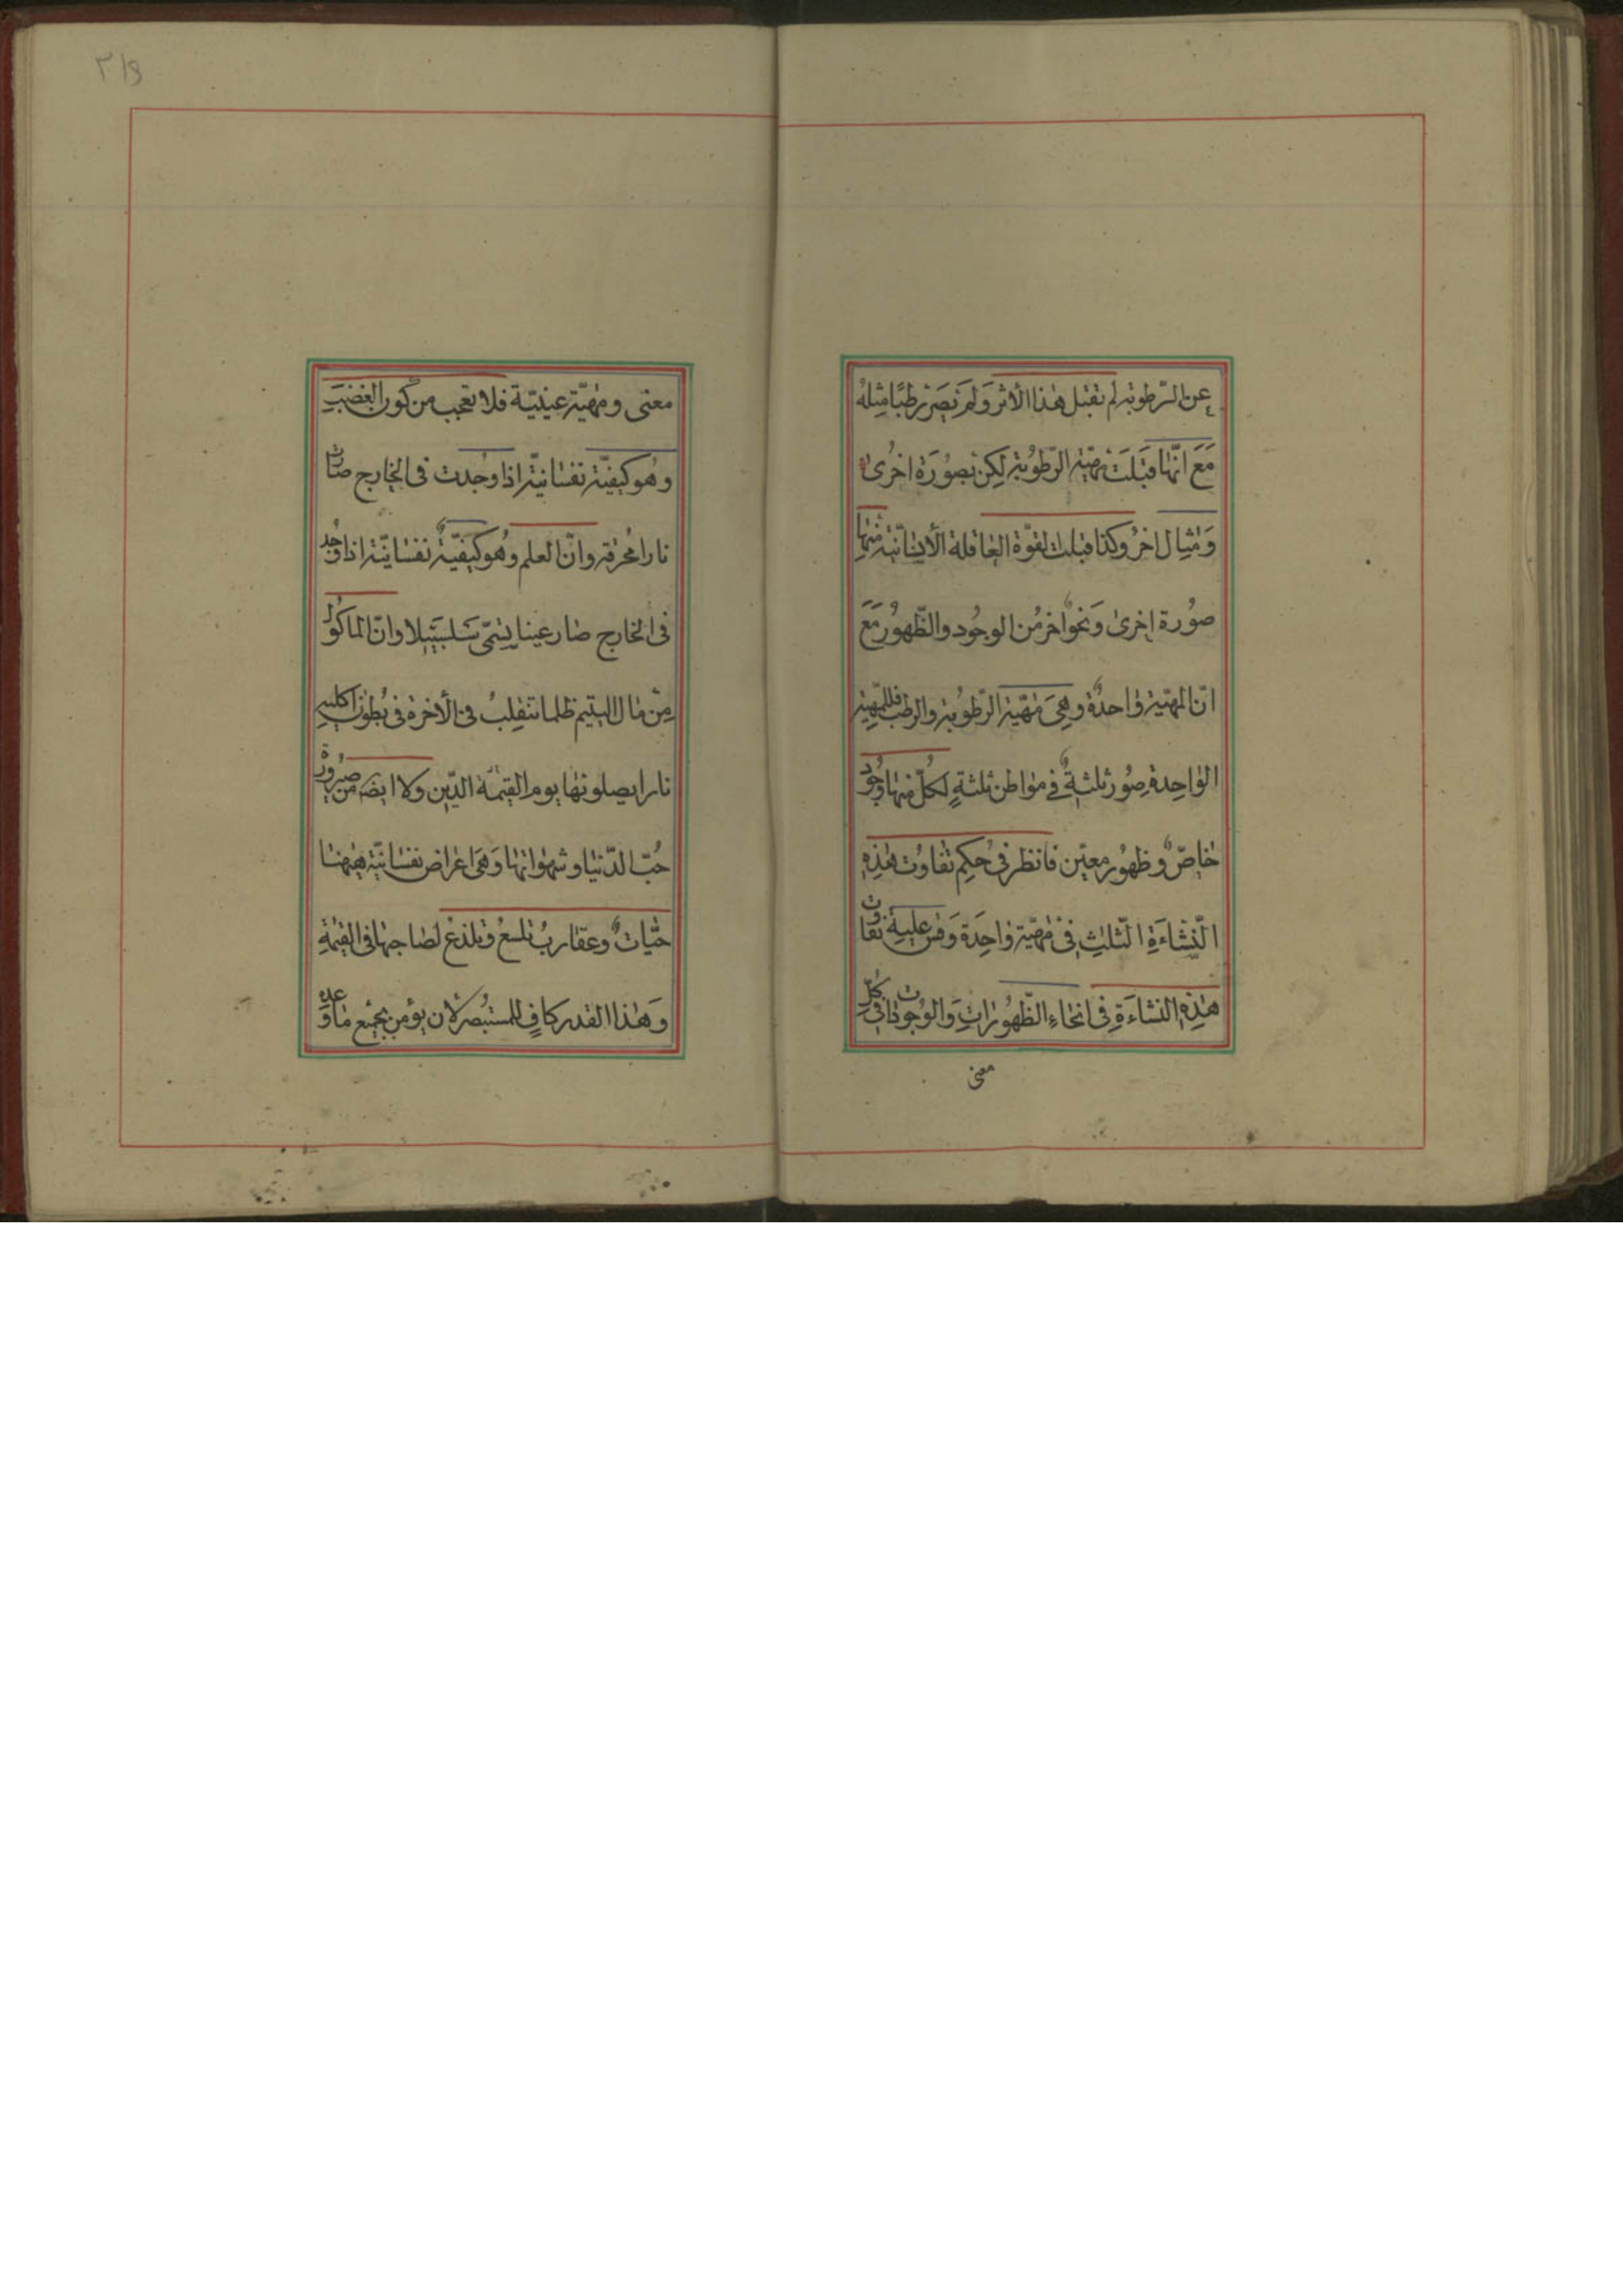 عن الرّطوبة لم تقبل هذا الأثر وَلم تَصِر رطبًا مثله
مَعَ انّها قبَلَت مهيّة الرّطُوبة لكن بصُورَة اخرُى
وَمثال اخرُ وكذا قبلت لقوّة العاقلة الأنسانيّة منها
صُورة اخرىٰ وَنحوًا اخر مُن الوجُود والظّهوُر مَعَ
انّ المهيّة واحدةٌ وهِىَ مهيّة الرّطوُبة والرطب فللمهيّة
الواحِدة صُور ثلثةٌ فى مواطن ثلثةٍ لكلّ منها وجُود
خاصّ وظهوُر معيّن فانظر فى حُكم تفاوُت هٰذِه
النّشاءَةِ الثّلثِ فى مهيّة واحِدَة وَقس عليه تفاوت
هٰذِه النشاءَةِ فى انحاءِ الظّهوُراتِ وَالوُجودات فى كلّ
معنى
٣١٩
معنى ومهيّة عينيّة فلا تعجب من كون الغضبَ
وهُو كيفيّة نفسانيّة اذا وجُدت فى الخارج صارت
نارا مُحرقة وانّ العلم وهُو كيفيّةٌ نفسانيّة اذا وُجد
فى الخارج صار عينا يسُمّى سَلسَبيلا وانّ الماكوُل
مِن مال اليتيم ظلما تنقلِبُ فى الأخرة فى بُطون اكليه
نارا يصلونها يوم القيٰمة الدّين ولا ايضَ من صيرُورة
حُبّ الدّنيا وشهواتها وَهىَ اعراض نفسانيّة هٰيهنا
حيّاتٌ وعقاربُ تلسعُ وتلذغ لصاحبها فى القيٰمَةِ
وَهٰذا القدر كافٍ للمستبُصر لأن يؤمن بجميع ما وعده